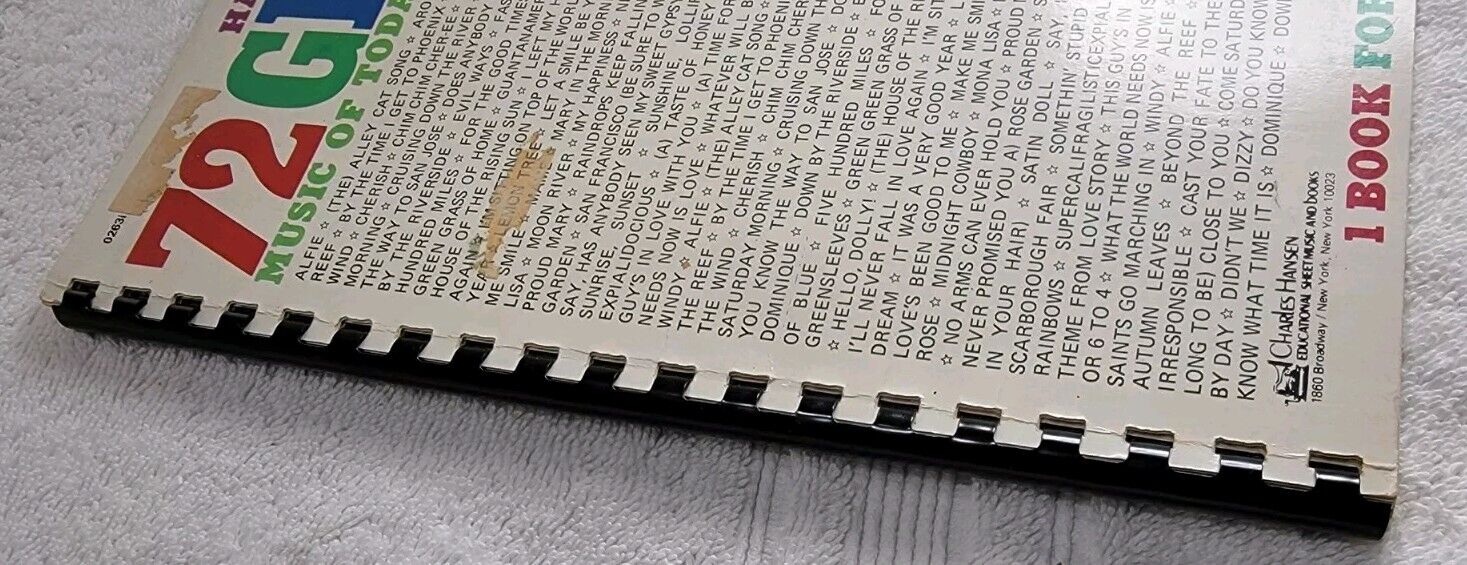 02631
72 G
MUSIC OF TODA
ALFIE ☆ (THE) ALLEY CAT SONG ☆ ARO
REEF ☆ BY THE TIME I GET TO PHOENIX
WIND ☆ CHERISH ☆ CHIM CHIM CHER-EE ☆
MORNING ☆ CRUISING DOWN THE RIVER
THE WAY TO SAN JOSE ☆ DOES ANYBODY
BY THE RIVERSIDE ☆ EVIL WAYS ☆ FAS
HUNDRED MILES ☆ FOR THE GOOD TIMES
GREEN GRASS OF HOME ☆ GUANTANAMER
HOUSE OF THE RISING SUN ☆ I LEFT MY H
AGAIN ☆ ON TOP OF THE WORLD
YEAR LET A SMILE BE Y
ME SMILE ☆ MARY IN THE MORNI
LISA ☆ MOON RIVER ☆ MY HAPPINESS
PROUD MARY ☆ RAINDROPS KEEP
GARDEN ☆ SAN FRANCISCO (BE
SAY, HAS ANYBODY SEEN MY SWEET GYPSY
SUNRISE, SUNSET ☆ SUNSHINE, LOLLIP
EXPIALIDOCIOUS ☆ (A) TASTE OF HONEY
GUY'S IN LOVE WITH YOU ☆ (A) TIME FOR
NEEDS NOW IS LOVE ☆ WHATEVER WILL B
WINDY ☆ ALFIE ☆ (THE) ALLEY CAT SONG
THE REEF ☆ BY THE TIME I GET TO PHOENI
THE WIND ☆ CHERISH ☆ CHIM CHIM CHER
SATURDAY MORNING ☆ CRUISING DOWN TH
YOU KNOW THE WAY TO SAN JOSE ☆ DO
DOMINIQUE ☆ DOWN BY THE RIVERSIDE ☆ E
OF BLUE ☆ FIVE HUNDRED MILES ☆ FO
GREENSLEEVES ☆ GREEN GREEN GRASS OF
☆ HELLO, DOLLY! ☆ (THE) HOUSE OF THE RI
I'LL NEVER FALL IN LOVE AGAIN ☆ I'M SIT
DREAM ☆ IT WAS A VERY GOOD YEAR ☆ L
LOVE'S BEEN GOOD TO ME ☆ MAKE ME SMI
ROSE ☆ MIDNIGHT COWBOY ☆ MONA LISA ☆
☆ NO ARMS CAN EVER HOLD YOU ☆ PROUD
NEVER PROMISED YOU A) ROSE GARDEN ☆ S
IN YOUR HAIR) ☆ SATIN DOLL ☆ SAY,
SCARBOROUGH FAIR ☆ SOMETHIN' STUPID
RAINBOWS ☆ SUPERCALIFRAGILISTICEXPIAL
THEME FROM LOVE STORY ☆ THIS GUY'S IN
OR 6 TO 4 ☆ WHAT THE WORLD NEEDS NOW IS
SAINTS GO MARCHING IN ☆ WINDY ☆ ALFIE
AUTUMN LEAVES ☆ BEYOND THE REEF ☆
IRRESPONSIBLE ☆ CAST YOUR FATE TO THE
LONG TO BE) CLOSE TO YOU ☆ COME SATURD
BY DAY ☆ DIDN'T WE ☆ DIZZY ☆ DO YOU KNOW
KNOW WHAT TIME IT IS ☆ DOMINIQUE ☆ DOW
CHARLES HANSEN
EDUCATIONAL SHEET MUSIC AND BOOKS
1860 Broadway / New York, New York 10023
1 BOOK FOR